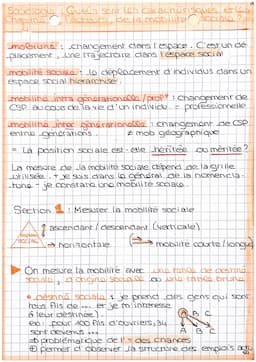 Quels sont les caractéristiques et les
Chapitre de la mobilité sociale ?
mobilité : changement dans l'espace. C'est un dé-
placement, une trajectoire dans l'espace social
mobilité sociale : le déplacement d'individus dans un
espace social hiérarchisé.
mobilité intra générationnelle / prof : changement de
CSP au cours de la vie d'un individu = professionnelle
mobilité inter générationnelle : changement de CSP
entre générations. ≠ mob géographique
= La position sociale est-elle héritée ou méritée ?
La mesure de la mobilité sociale dépend de la grille
utilisée. + je suis dans le général de la nomencla-
ture - je constate une mobilité sociale.
Section 1 : Mesurer la mobilité sociale
ascendant / descendant (verticale)
→ horizontale → mobilité courte / longue
On mesure la mobilité avec une table de destiné
sociale, d'origine sociale ou une table brute
destiné sociale : je prend des gens qui sont
tous fils de ... et je m'interesse
à leur destinée)
ex : pour 100 fils d'ouvriers, 34
sont devenus ... A B C
problématique de l'≠ des chances
permet d'observer la structure des emplois